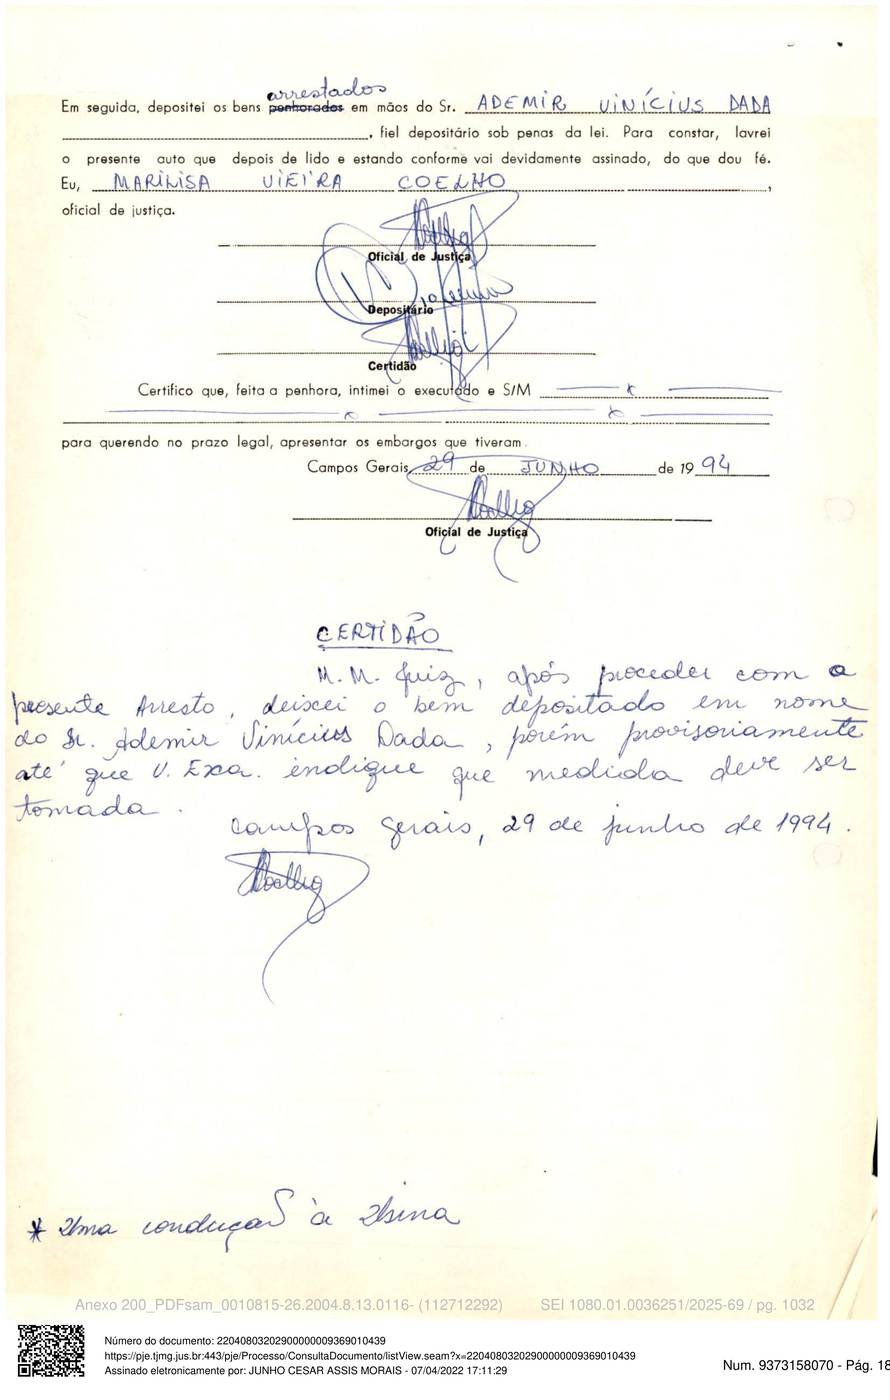 arrestados
Em seguida, depositei os bens penhorados em mãos do Sr. ADEMIR VINÍCIUS DADA
, fiel depositário sob penas da lei. Para constar, lavrei
o presente auto que depois de lido e estando conforme vai devidamente assinado, do que dou fé.
Eu, MARILISA VIEIRA COELHO,
oficial de justiça.
Oficial de Justiça
Depositário
Certidão
Certifico que, feita a penhora, intimei o executado e S/M
para querendo no prazo legal, apresentar os embargos que tiveram.
Campos Gerais, 29 de JUNHO de 1994
Oficial de Justiça
CERTIDÃO
M. M. Juiz, após proceder com o
presente Arresto, deixei o bem depositado em nome
do Sr. Ademir Vinícius Dada, porém provisoriamente
até que V. Exa. indique que medida deve ser
tomada.
Campos Gerais, 29 de junho de 1994.
* Uma condução à Usina
Anexo 200_PDFsam_0010815-26.2004.8.13.0116- (112712292) SEI 1080.01.0036251/2025-69 / pg. 1032
Número do documento: 22040803202900000009369010439
https://pje.tjmg.jus.br:443/pje/Processo/ConsultaDocumento/listView.seam?x=22040803202900000009369010439
Assinado eletronicamente por: JUNHO CESAR ASSIS MORAIS - 07/04/2022 17:11:29
Num. 9373158070 - Pág. 18